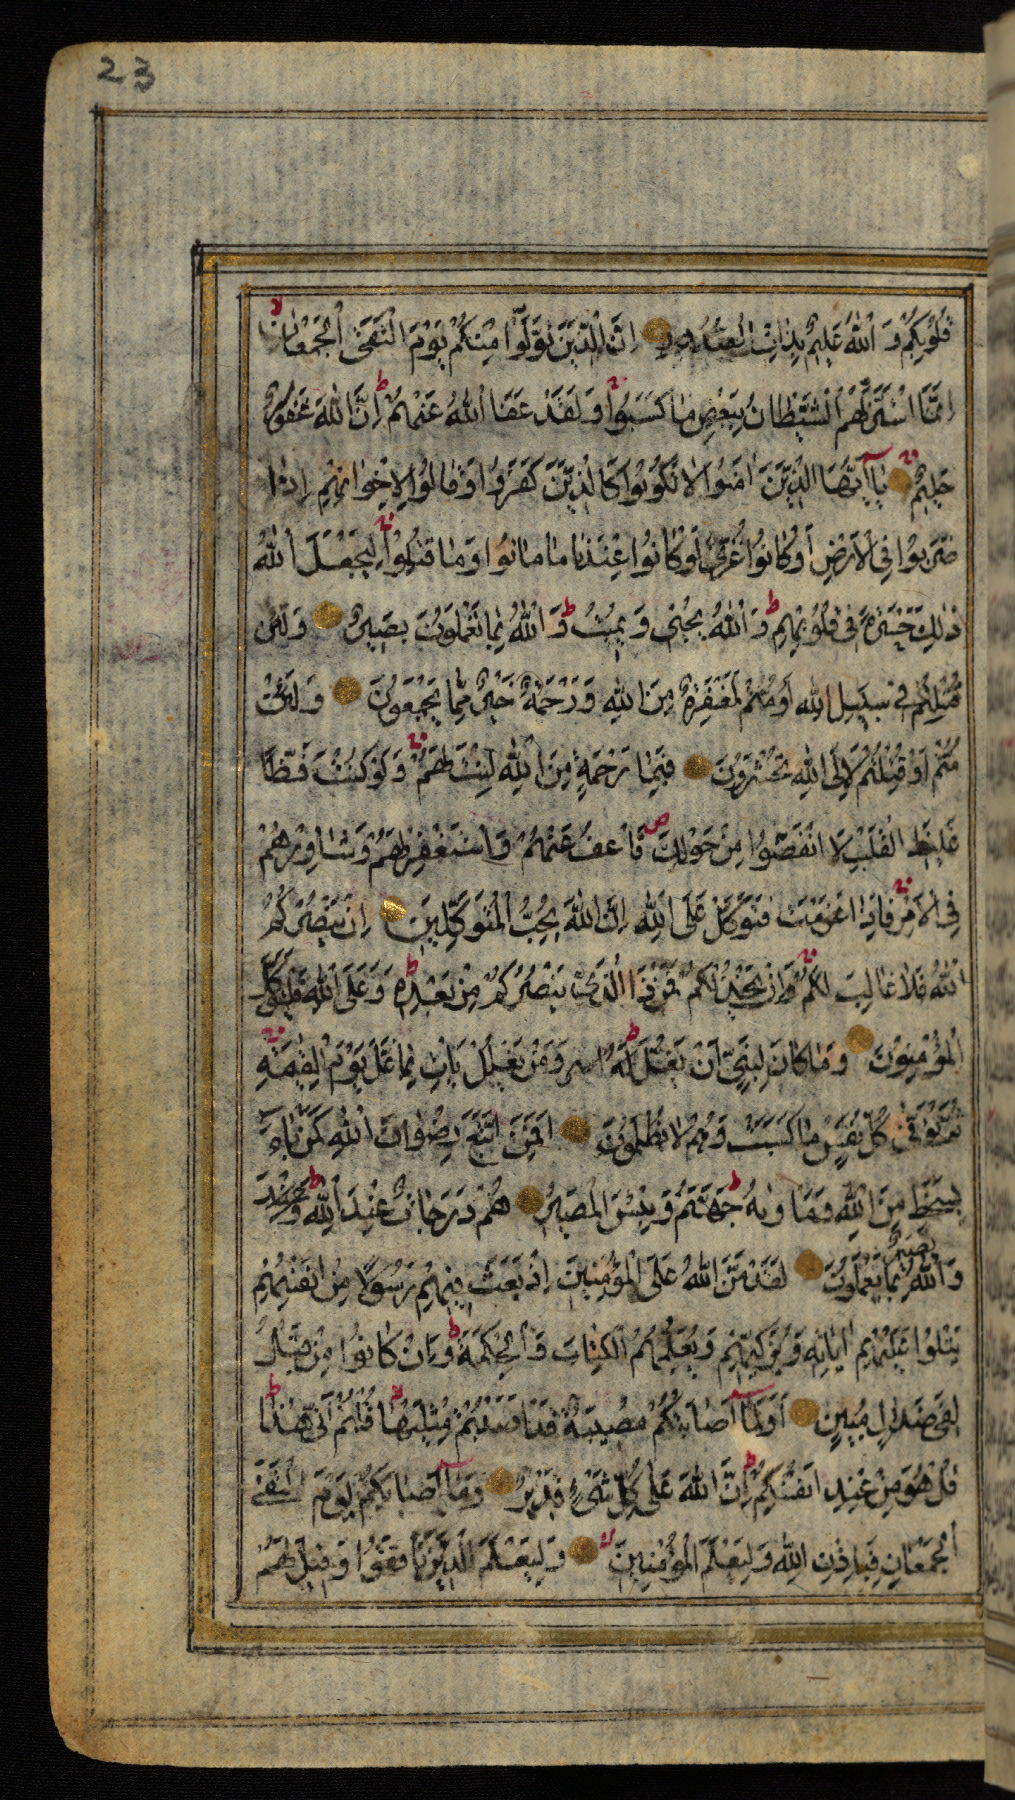 23
قُلُوبِكُمْ وَ اللهُ عَلِيمٌ بِذَاتِ الصُّدُورِ اِنَّ الَّذِينَ تَوَلَّوْا مِنْكُمْ يَوْمَ الْتَقَى الْجَمْعَانِ لا
اِنَّمَا اسْتَزَلَّهُمُ الشَّيْطَانُ بِبَعْضِ مَا كَسَبُوا وَ لَقَدْ عَفَا اللهُ عَنْهُمْ ط اِنَّ اللهَ غَفُورٌ
حَلِيمٌ يَا اَيُّهَا الَّذِينَ اٰمَنُوا لَا تَكُونُوا كَالَّذِينَ كَفَرُوا وَ قَالُوا لِاِخْوَانِهِمْ اِذَا
ضَرَبُوا فِى الْاَرْضِ اَوْ كَانُوا غُزًّى لَوْ كَانُوا عِنْدَنَا مَا مَاتُوا وَ مَا قُتِلُوا لِيَجْعَلَ اللهُ
ذٰلِكَ حَسْرَةً فِى قُلُوبِهِمْ ط وَ اللهُ يُحْيِى وَ يُمِيتُ ط وَ اللهُ بِمَا تَعْمَلُونَ بَصِيرٌ وَ لَئِنْ
قُتِلْتُمْ فِى سَبِيلِ اللهِ اَوْ مُتُّمْ لَمَغْفِرَةٌ مِنَ اللهِ وَ رَحْمَةٌ خَيْرٌ مِمَّا يَجْمَعُونَ وَ لَئِنْ
مُتُّمْ اَوْ قُتِلْتُمْ لَاِلَى اللهِ تُحْشَرُونَ فَبِمَا رَحْمَةٍ مِنَ اللهِ لِنْتَ لَهُمْ وَ لَوْ كُنْتَ فَظًّا
غَلِيظَ الْقَلْبِ لَا انْفَضُّوا مِنْ حَوْلِكَ ص فَاعْفُ عَنْهُمْ وَ اسْتَغْفِرْ لَهُمْ وَ شَاوِرْهُمْ
فِى الْاَمْرِ فَاِذَا عَزَمْتَ فَتَوَكَّلْ عَلَى اللهِ اِنَّ اللهَ يُحِبُّ الْمُتَوَكِّلِينَ اِنْ يَنْصُرْكُمُ
اللهُ فَلَا غَالِبَ لَكُمْ وَ اِنْ يَخْذُلْكُمْ فَمَنْ ذَا الَّذِى يَنْصُرُكُمْ مِنْ بَعْدِهِ ط وَ عَلَى اللهِ فَلْيَتَوَكَّلِ
الْمُؤْمِنُونَ وَ مَا كَانَ لِنَبِىٍّ اَنْ يَغُلَّ ط وَ مَنْ يَغْلُلْ يَاْتِ بِمَا غَلَّ يَوْمَ الْقِيٰمَةِ
ثُمَّ تُوَفّٰى كُلُّ نَفْسٍ مَا كَسَبَتْ وَ هُمْ لَا يُظْلَمُونَ اَفَمَنِ اتَّبَعَ رِضْوَانَ اللهِ كَمَنْ بَاءَ
بِسَخَطٍ مِنَ اللهِ وَ مَاْوٰيهُ جَهَنَّمُ ط وَ بِئْسَ الْمَصِيرُ هُمْ دَرَجَاتٌ عِنْدَ اللهِ ط
وَ اللهُ بَصِيرٌ بِمَا يَعْمَلُونَ لَقَدْ مَنَّ اللهُ عَلَى الْمُؤْمِنِينَ اِذْ بَعَثَ فِيهِمْ رَسُولًا مِنْ اَنْفُسِهِمْ
يَتْلُوا عَلَيْهِمْ اٰيَاتِهِ وَ يُزَكِّيهِمْ وَ يُعَلِّمُهُمُ الْكِتَابَ وَ الْحِكْمَةَ ط وَ اِنْ كَانُوا مِنْ قَبْلُ
لَفِى ضَلَالٍ مُبِينٍ اَوَلَمَّا اَصَابَتْكُمْ مُصِيبَةٌ قَدْ اَصَبْتُمْ مِثْلَيْهَا قُلْتُمْ اَنّٰى هٰذَا ط
قُلْ هُوَ مِنْ عِنْدِ اَنْفُسِكُمْ ط اِنَّ اللهَ عَلٰى كُلِّ شَىْءٍ قَدِيرٌ وَ مَا اَصَابَكُمْ يَوْمَ الْتَقَى
الْجَمْعَانِ فَبِاِذْنِ اللهِ وَ لِيَعْلَمَ الْمُؤْمِنِينَ لا وَ لِيَعْلَمَ الَّذِينَ نَافَقُوا وَ قِيلَ لَهُمْ